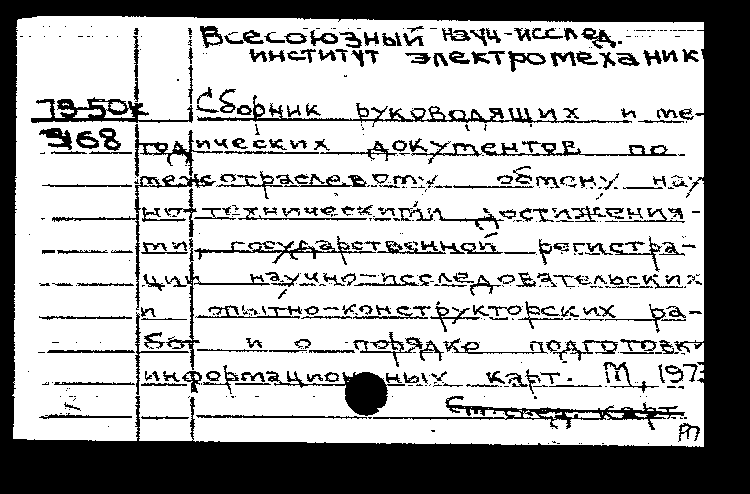 Всесоюзный науч-исслед.
институт электромеханик
78-50к
3168
Сборник руководящих и ме-
тодических документов по
межотраслевому обмену науч
но-техническими достижения-
ми, государственной регистра-
ции научно-исследовательских
и опытно-конструкторских ра-
бот и о порядке подготовки
информационных карт. М, 1973
См след. карт
М